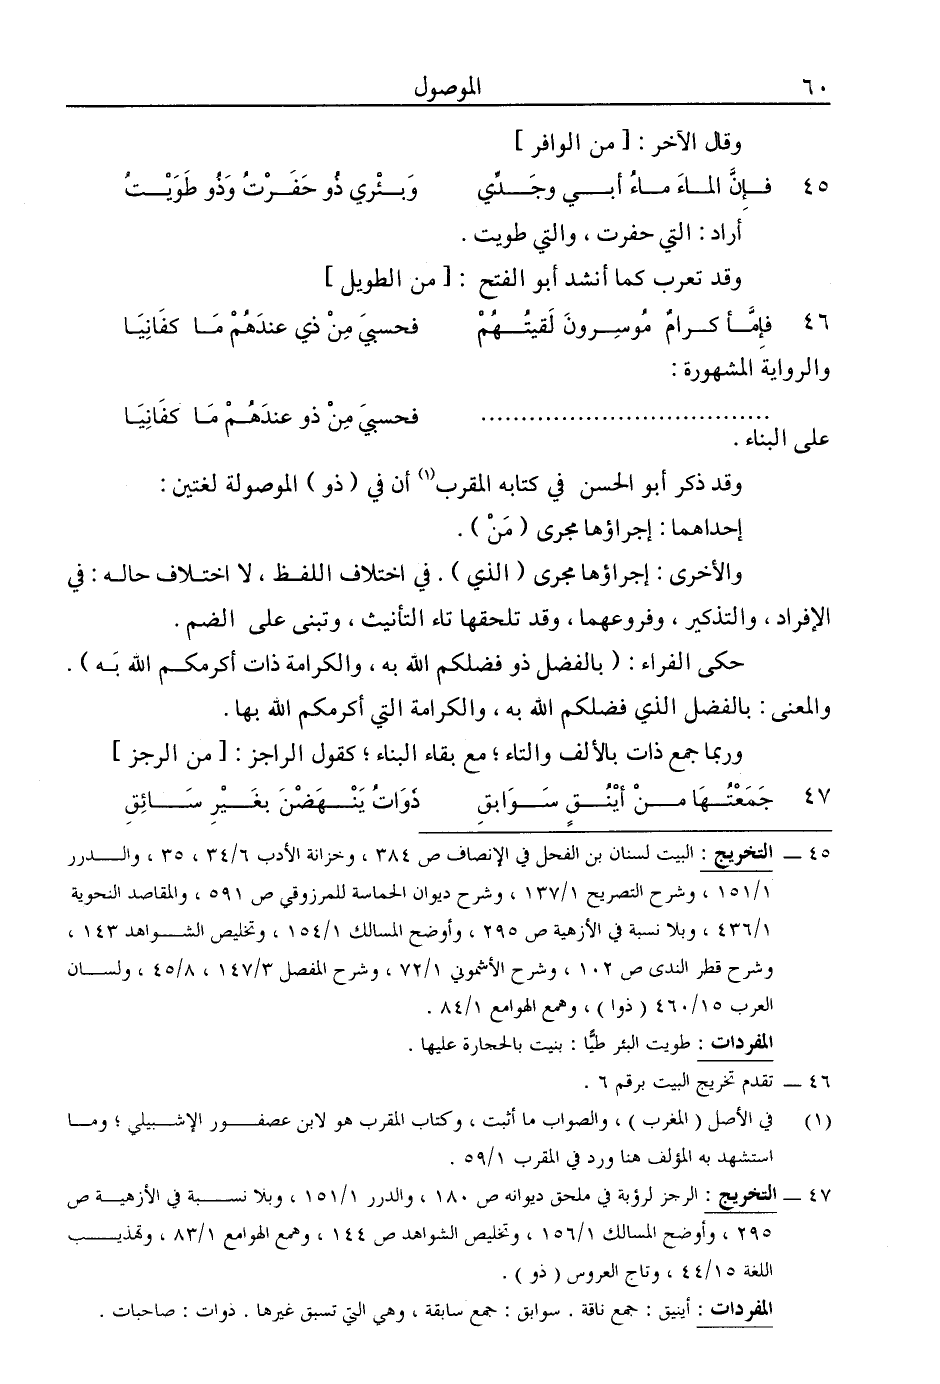 ٦٠ الموصول
وقال الآخر : [ من الوافر ]
٤٥ فــإنَّ الماءَ مــاءُ أبـــي وجَـــدِّي وَبــئْري ذُو حَفَــرْتُ وَذُو طَوَيْــتُ
أراد : التي حفرت ، والتي طويت .
وقد تعرب كما أنشد أبو الفتح : [ من الطويل ]
٤٦ فإمَّــا كــرامٌ مُوسِــرونَ لَقيتُــهُمْ فحسبيَ مِنْ ذي عندَهُمْ مَـا كفَانِيَا
والرواية المشهورة :
.................................. فحسبيَ مِنْ ذو عندَهُــمْ مَـا كفَانِيَا
على البناء .
وقد ذكر أبو الحسن في كتابه المقرب(١) أن في ( ذو ) الموصولة لغتين :
إحداهما : إجراؤها مجرى ( مَنْ ) .
والأخرى : إجراؤها مجرى ( الذي ) . في اختلاف اللفـظ ، لا اختـلاف حالـه : في
الإفراد ، والتذكير ، وفروعهما ، وقد تلحقها تاء التأنيث ، وتبنى على الضم .
حكى الفراء : ( بالفضل ذو فضلكم الله به ، والكرامة ذات أكرمكـم الله بَـه ) .
والمعنى : بالفضل الذي فضلكم الله به ، والكرامة التي أكرمكم الله بها .
وربما جمع ذات بالألف والتاء ؛ مع بقاء البناء ؛ كقول الراجز : [ من الرجز ]
٤٧ جَمَعْتُــهَا مــنْ أيْنُــقٍ سَــوَابقِ ذَوَاتُ يَنْــهَضْنَ بغَــيْرِ سَــائِقِ
٤٥ ــ التخريج : البيت لسنان بن الفحل في الإنصاف ص ٣٨٤ ، وخزانة الأدب ٣٤/٦ ، ٣٥ ، والــدرر
١٥١/١ ، وشرح التصريح ١٣٧/١ ، وشرح ديوان الحماسة للمرزوقي ص ٥٩١ ، والمقاصد النحوية
٤٣٦/١ ، وبلا نسبة في الأزهية ص ٢٩٥ ، وأوضح المسالك ١٥٤/١ ، وتخليص الشــواهد ١٤٣ ،
وشرح قطر الندى ص ١٠٢ ، وشرح الأشموني ٧٢/١ ، وشرح المفصل ١٤٧/٣ ، ٤٥/٨ ، ولســان
العرب ٤٦٠/١٥ ( ذوا ) ، وهمع الهوامع ٨٤/١ .
المفردات : طويت البئر طيًّا : بنيت بالحجارة عليها .
٤٦ ــ تقدم تخريج البيت برقم ٦ .
(١) في الأصل ( المغرب ) ، والصواب ما أثبت ، وكتاب المقرب هو لابن عصفــور الإشــبيلي ؛ ومــا
استشهد به المؤلف هنا ورد في المقرب ٥٩/١ .
٤٧ ــ التخريج : الرجز لرؤبة في ملحق ديوانه ص ١٨٠ ، والدرر ١٥١/١ ، وبلا نســبة في الأزهيــة ص
٢٩٥ ، وأوضح المسالك ١٥٦/١ ، وتخليص الشواهد ص ١٤٤ ، وهمع الهوامع ٨٣/١ ، وتهذيــب
اللغة ٤٤/١٥ ، وتاج العروس ( ذو ) .
المفردات : أينيق : جمع ناقة . سوابق : جمع سابقة ، وهي التي تسبق غيرها . ذوات : صاحبات .